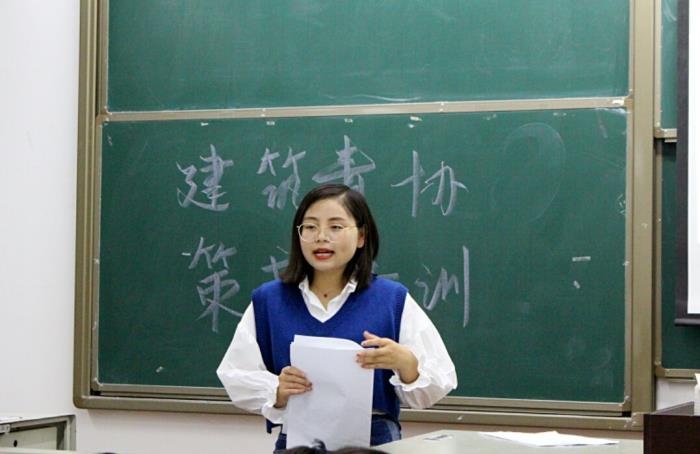 建筑青协
策 训